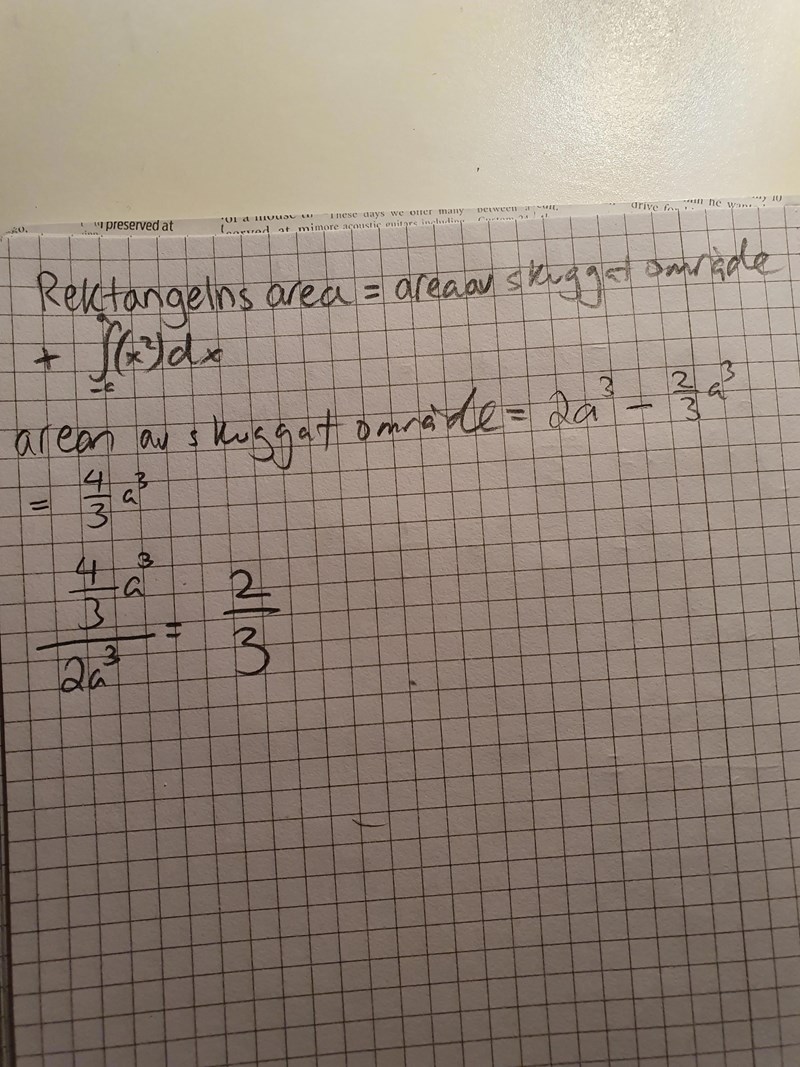 preserved at
These days we offer many between a
at mimore acoustic guitars including
drive
Rektangelns area = area av skuggat område
+ ∫(x²)dx
arean av skuggat område = 2a³ - 2/3 a³
= 4/3 a³
4/3 a³ / 2a³ = 2/3